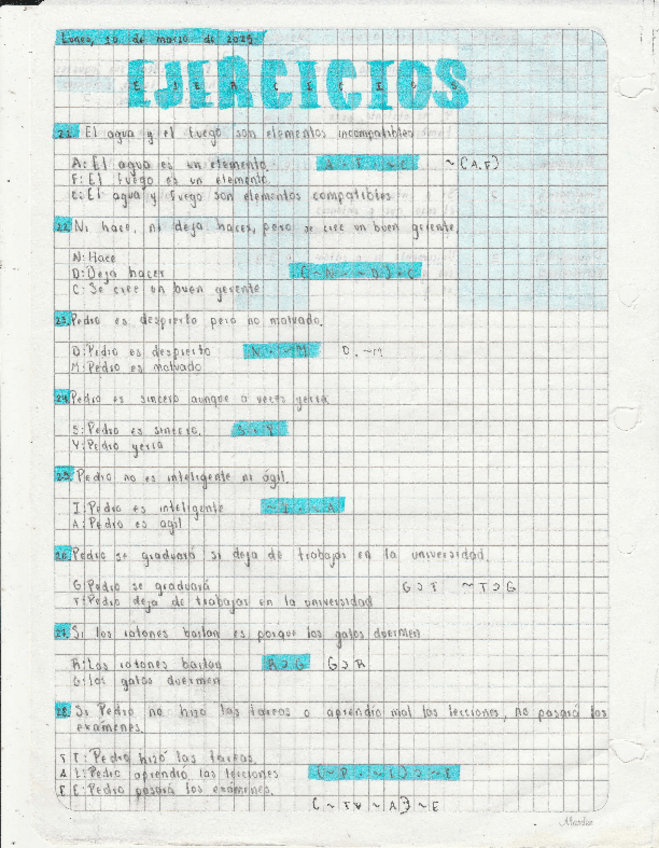 Lunes, 10 de marzo de 2025
EJERCICIOS
21. El agua y el fuego son elementos incompatibles
A: El agua es un elemento. A . F . ~ C ~(A.F)
F: El fuego es un elemento.
C: El agua y fuego son elementos compatibles
22. Ni hace, ni deja hacer, pero se cree un buen gerente.
N: Hace
D: Deja hacer (~N . ~D) . C
C: Se cree un buen gerente
23. Pedro es despierto pero no malvado.
D: Pedro es despierto N . ~M D . ~M
M: Pedro es malvado
24. Pedro es sincero aunque a veces yerra
S: Pedro es sincero. S . Y
Y: Pedro yerra
25. Pedro no es inteligente ni ágil.
I: Pedro es inteligente ~I . ~A
A: Pedro es agil
26. Pedro se graduará si deja de trabajar en la universidad.
G: Pedro se graduará G ⊃ T ~T ⊃ G
T: Pedro deja de trabajar en la universidad
27. Si los ratones bailan es porque los gatos duermen
R: Los ratones bailan R ⊃ G G ⊃ R
G: los gatos duermen
28. Si Pedro no hizo las tareas o aprendio mal las lecciones, no pasará los
exámenes.
T T: Pedro hizó las tareas.
A L: Pedro aprendió las lecciones
E E: Pedro pasará los exámenes.
(~T v ~A) ⊃ ~E